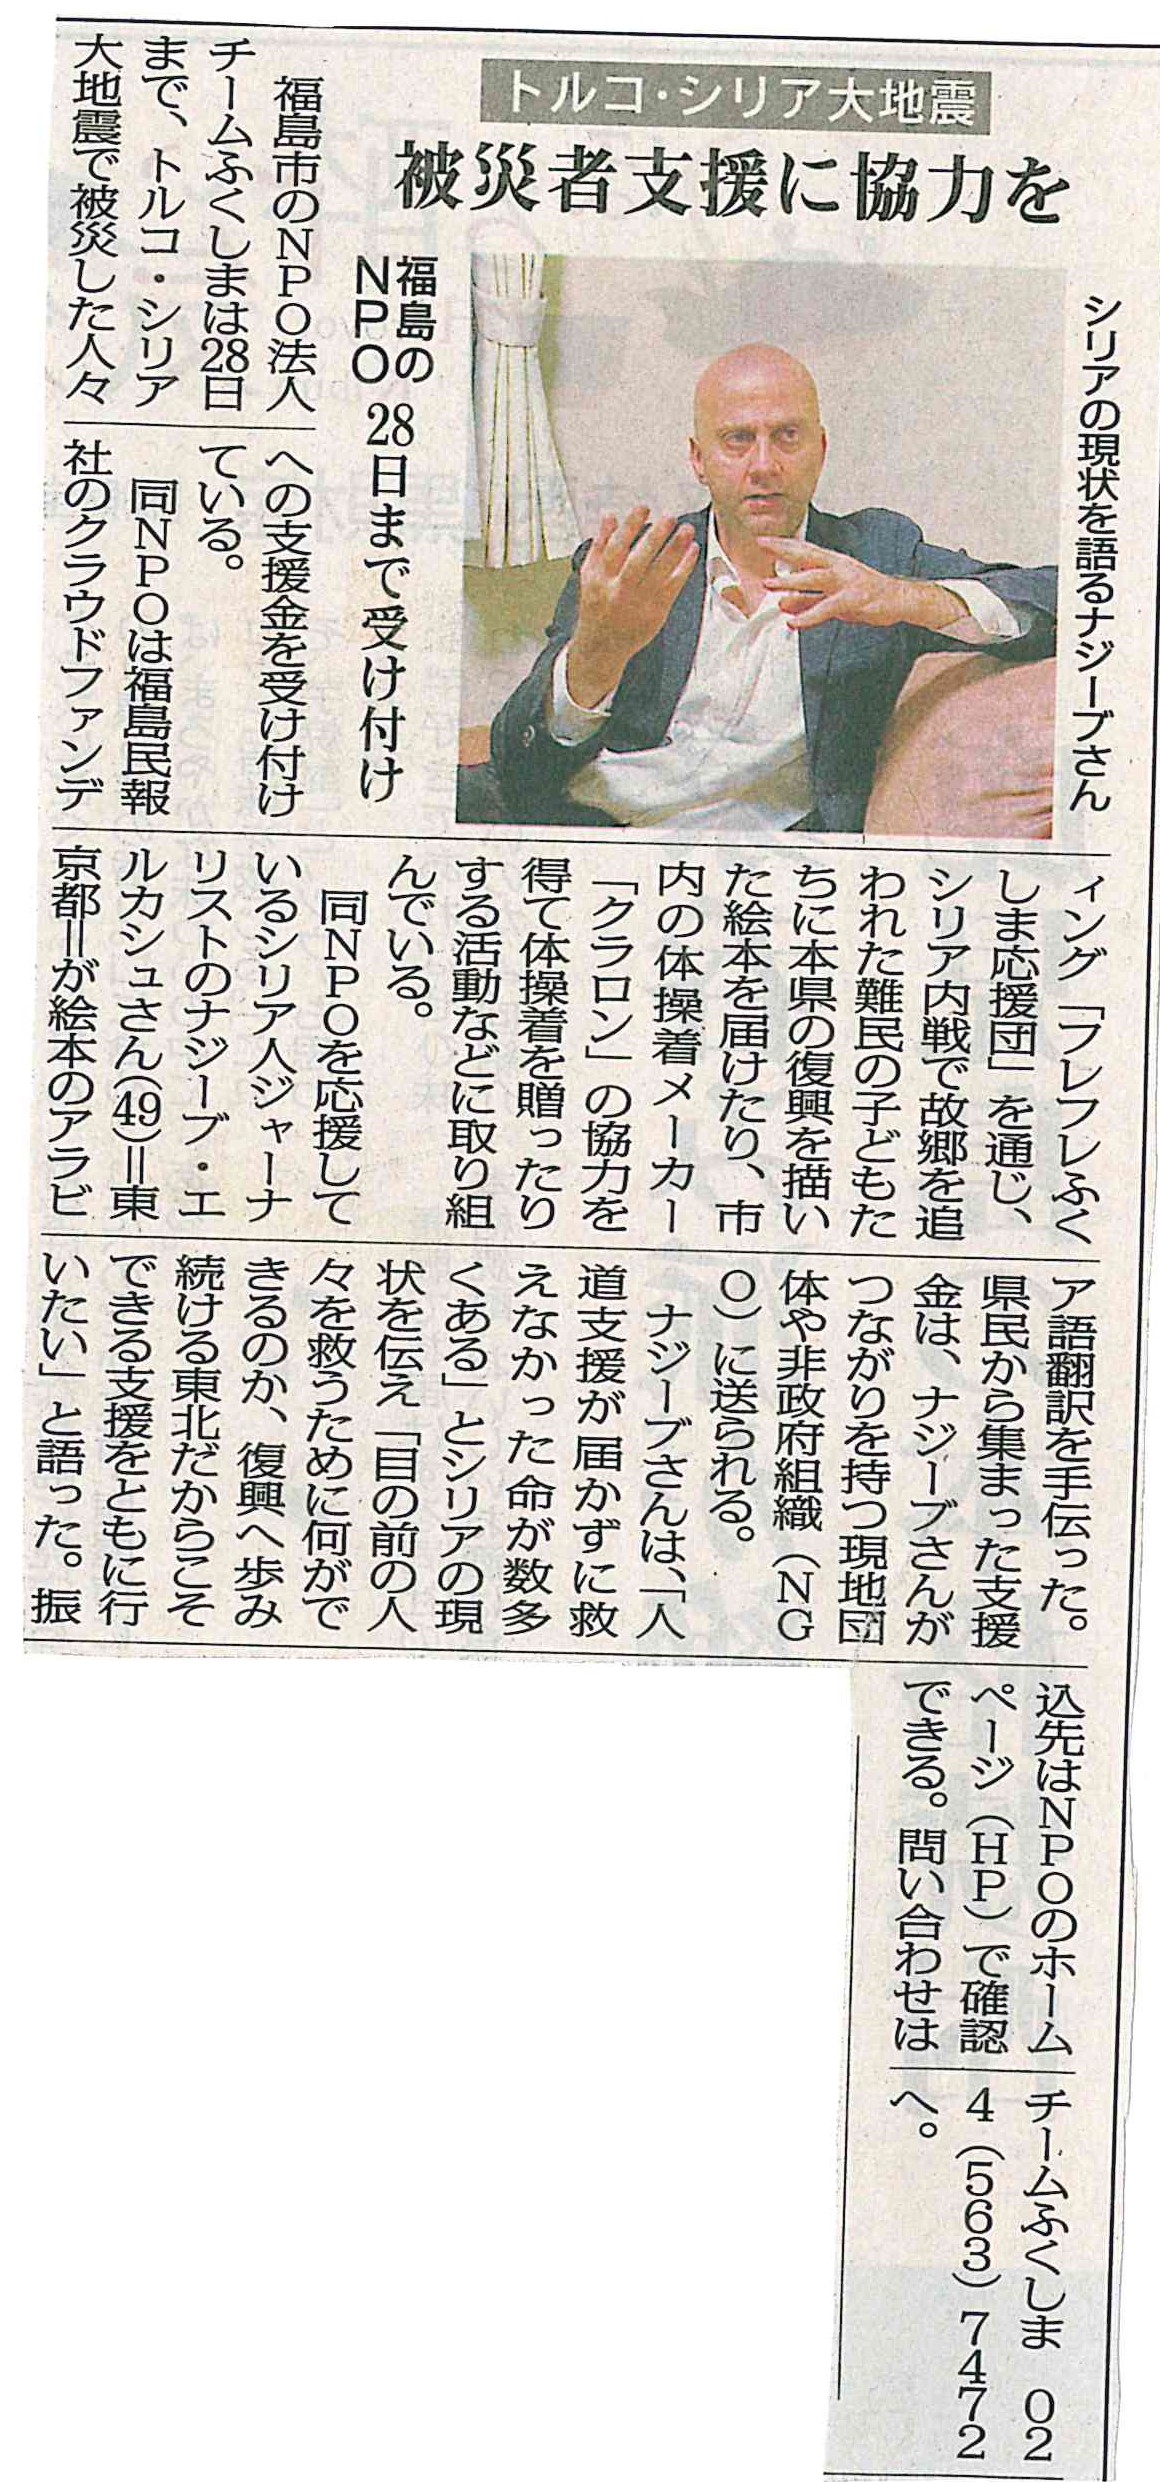 トルコ・シリア大地震
被災者支援に協力を
福島の
NPO
28日まで受け付け
シリアの現状を語るナジーブさん
福島市のNPO法人
チームふくしまは28日
まで、トルコ・シリア
大地震で被災した人々
への支援金を受け付け
ている。
同NPOは福島民報
社のクラウドファンデ
ィング「フレフレふく
しま応援団」を通じ、
シリア内戦で故郷を追
われた難民の子どもた
ちに本県の復興を描い
た絵本を届けたり、市
内の体操着メーカー
「クラロン」の協力を
得て体操着を贈ったり
する活動などに取り組
んでいる。
同NPOを応援して
いるシリア人ジャーナ
リストのナジーブ・エ
ルカシュさん(49)=東
京都=が絵本のアラビ
ア語翻訳を手伝った。
県民から集まった支援
金は、ナジーブさんが
つながりを持つ現地団
体や非政府組織(NG
O)に送られる。
ナジーブさんは、「人
道支援が届かずに救
えなかった命が数多
くある」とシリアの現
状を伝え「目の前の人
々を救うために何がで
きるのか、復興へ歩み
続ける東北だからこそ
できる支援をともに行
いたい」と語った。振
込先はNPOのホーム
ページ(HP)で確認
できる。問い合わせは
チームふくしま 02
4(563)7472
へ。